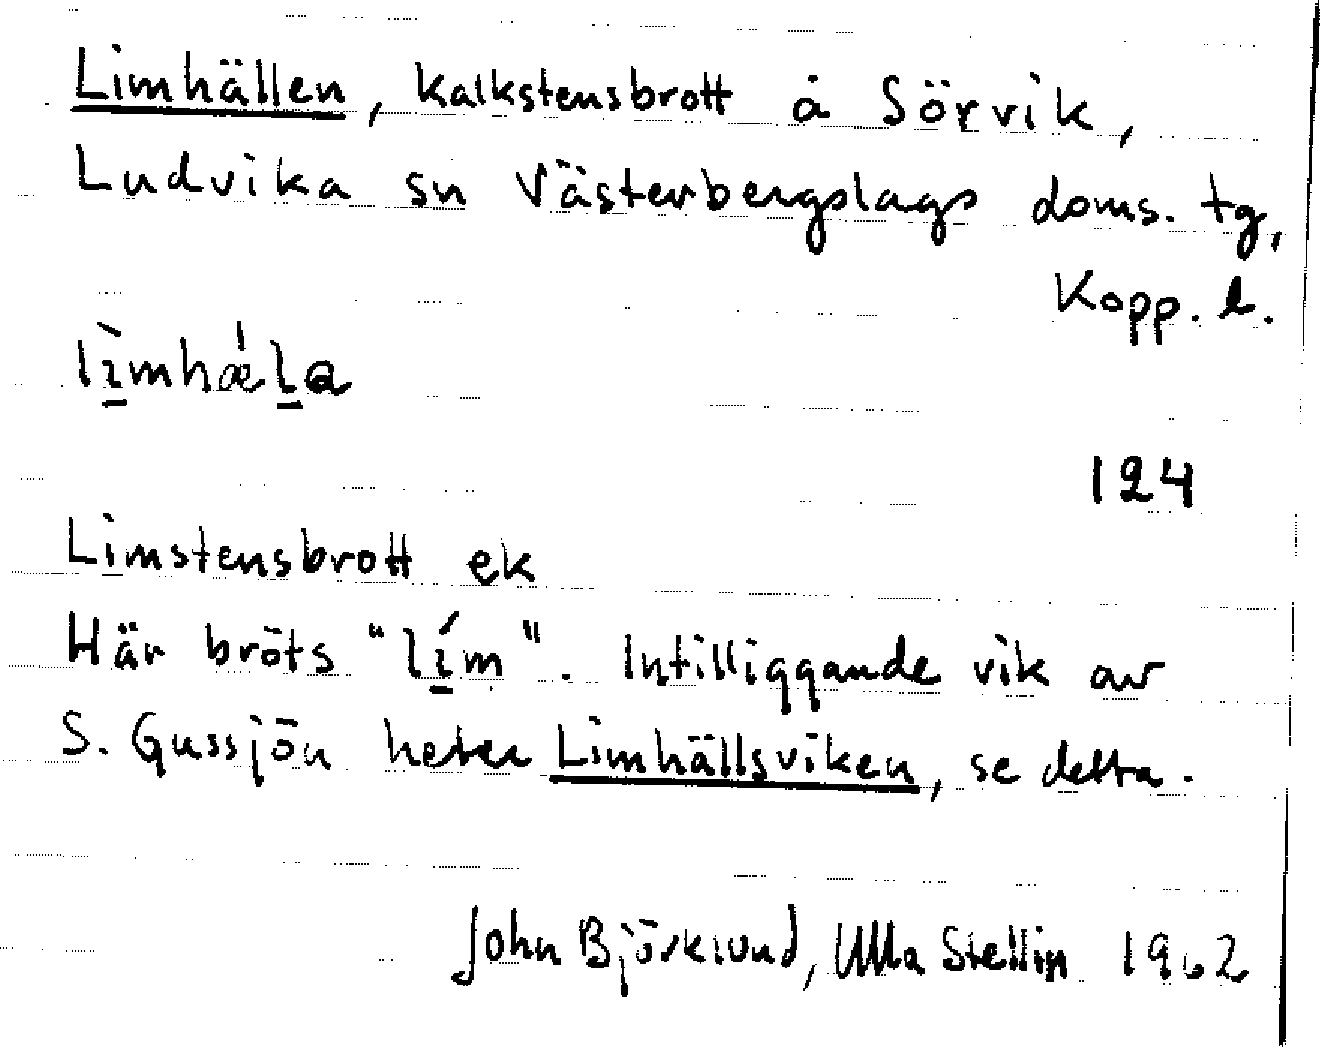 Limhällen, kalkstensbrott å Sörvik,
Ludvika sn Västerbergslags doms. tg,
Kopp. l.
lìmhǽla
124
Limstensbrott ek
Här bröts "lím". Intilliggande vik av
S. Gussjön heter Limhällsviken, se detta.
John Björklund, Ulla Stellin 1962